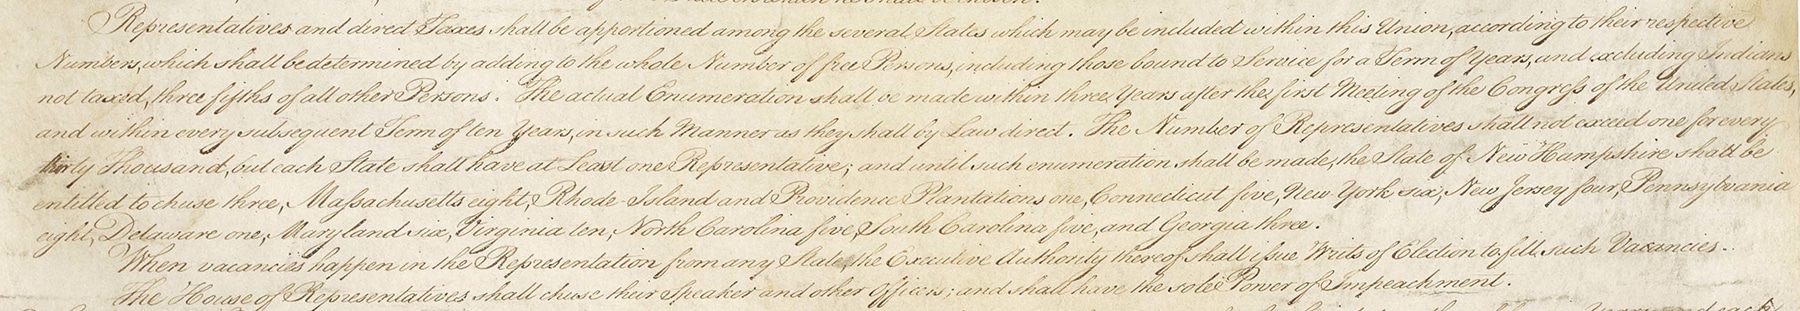 Representatives and direct Taxes shall be apportioned among the several States which may be included within this Union, according to their respective
Numbers, which shall be determined by adding to the whole Number of free Persons, including those bound to Service for a Term of Years, and excluding Indians
not taxed, three fifths of all other Persons. The actual Enumeration shall be made within three Years after the first Meeting of the Congress of the United States,
and within every subsequent Term of ten Years, in such Manner as they shall by Law direct. The Number of Representatives shall not exceed one for every
thirty Thousand, but each State shall have at Least one Representative; and until such enumeration shall be made, the State of New Hampshire shall be
entitled to chuse three, Massachusetts eight, Rhode-Island and Providence Plantations one, Connecticut five, New York six, New Jersey four, Pennsylvania
eight, Delaware one, Maryland six, Virginia ten, North Carolina five, South Carolina five, and Georgia three.
When vacancies happen in the Representation from any State, the Executive Authority thereof shall issue Writs of Election to fill such Vacancies.
The House of Representatives shall chuse their Speaker and other Officers; and shall have the sole Power of Impeachment.